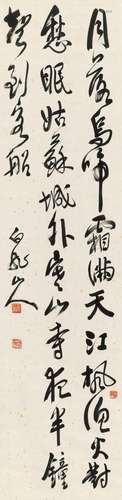 月落烏啼霜滿天江楓漁火對
愁眠姑蘇城外寒山寺夜半鐘
聲到客船
山人